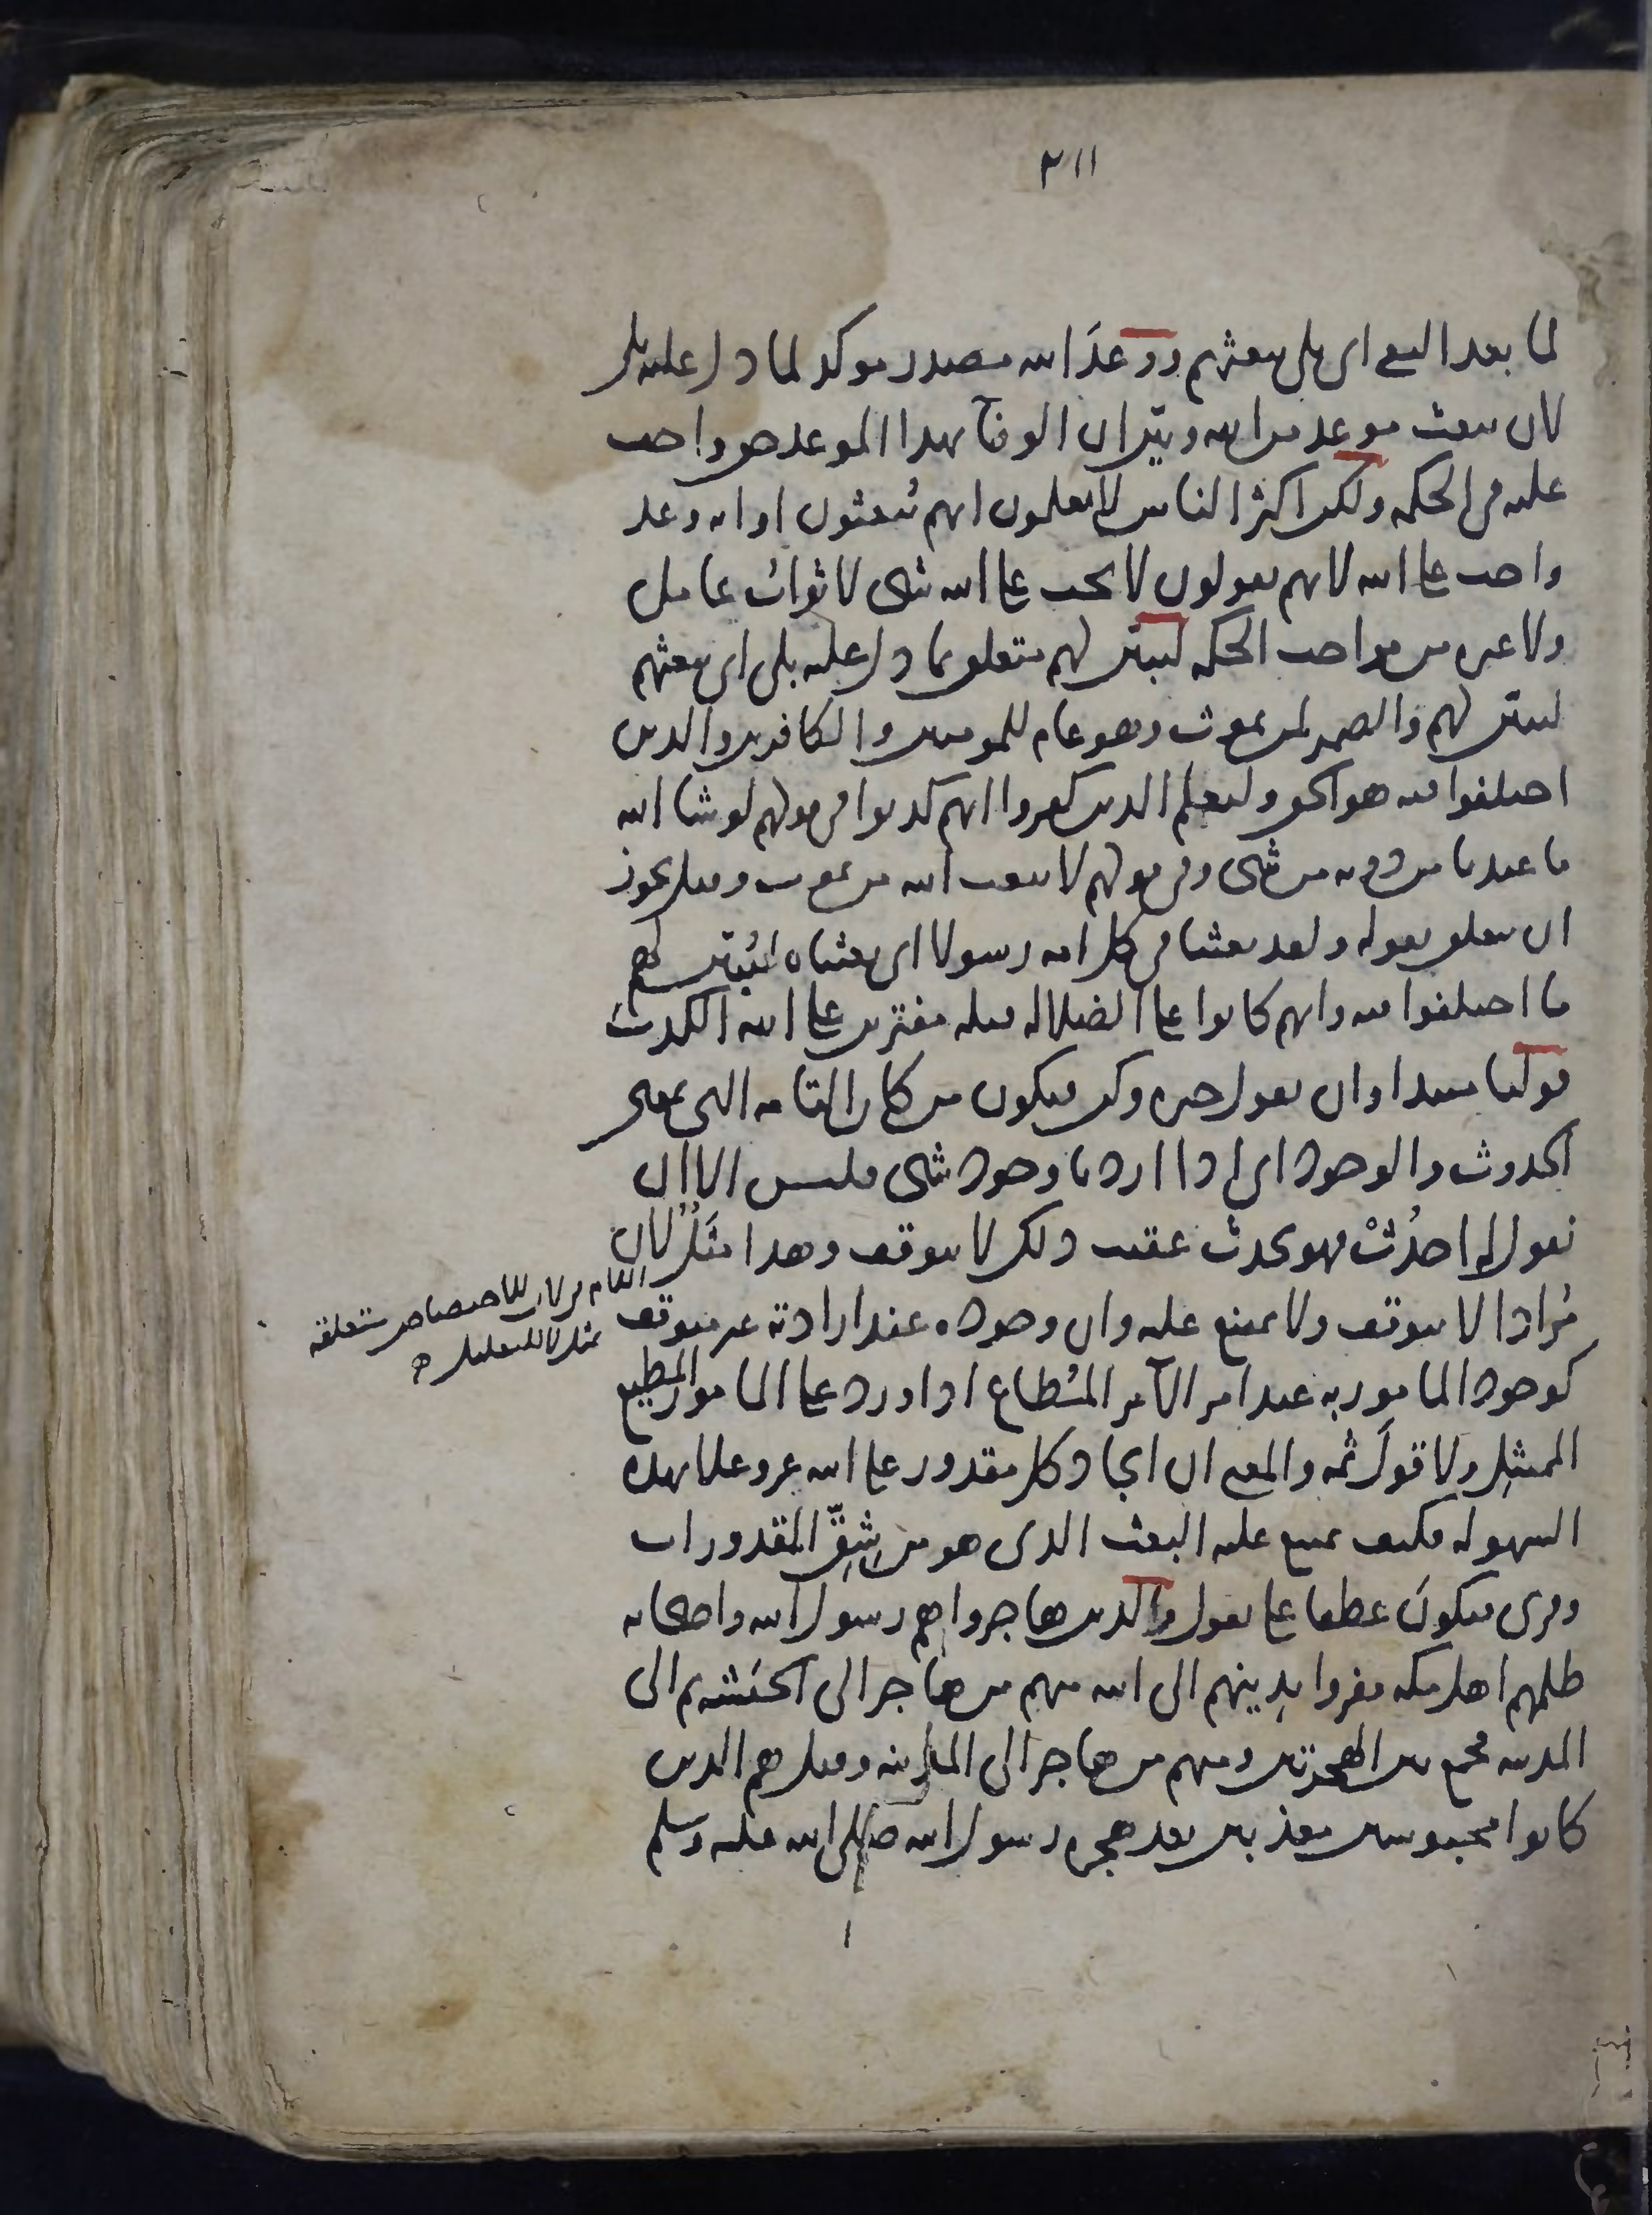 ٢١١
لما بعد النفي اى بلى يبعثهم ووعدَ الله مصدر موكد لما دل عليه بلى
لان يبعث موعد من الله وبيّن ان الوفآ بهذا الموعد حق واجب
عليه في الحكمه ولكن اكثر الناس لا يعلمون انهم يُبعثون او انه وعد
واجب على الله لانهم يقولون لا يجب على الله شى لا ثواب عامل
ولا غيره من مواجب الحكمه ليبيّن لهم متعلق بما دل عليه بلى اى يبعثهم
ليبيّن لهم والضمير لمن يموت وهو عام للمومنين والكافرين والذين
اختلفوا فيه هو الحق وليعلم الذين كفروا انهم كذبوا في قولهم لو شا الله
ما عبدنا من دونه من شى وفي قولهم لا يبعث الله من يموت وقيل يجوز
ان يتعلق بقوله ولقد بعثنا في كل امه رسولا اى بعثناه ليُبيّن لهم
ما اختلفوا فيه وانهم كانوا على الضلاله قبله مفترين على الله الكذب
قولنا مبتدا وان نقول خبره وكن فيكون من كان التامه التى بمعنى
الحدوث والوجود اى اذا اردنا وجود شى فليس الا ان
نقول له احدُثْ فهو يحدث عقيب ذلك لا يتوقف وهذا مثَلٌ لان
مُرادا لا يتوقف ولا يمتنع عليه وان وجوده عند ارادته غير متوقف
كوجود المامور به عند امر الآمر المُطاع اذا ورد على المامور المطيع
الممتثِل ولا قولَ ثَمّه والمعنى ان ايجاد كل مقدور على الله عز وعلا بهذه
السهوله فكيف يمتنع عليه البعث الذى هو من شِقّ المقدورات
وقرى فيكونَ عطفا على نقول والذين هاجروا هم رسول الله واصحابه
ظلمهم اهل مكه ففروا بدينهم الى الله منهم من هاجر الى الحبَشه ثم الى
المدينه فجمع بين الهجرتين ومنهم من هاجر الى المدينه وقيل هم الذين
كانوا محبوسين معذبين بعد هجره رسول الله صلى الله عليه وسلم
اللام في لان للاختصاص متعلقه
بمثل لا للتعليل ه